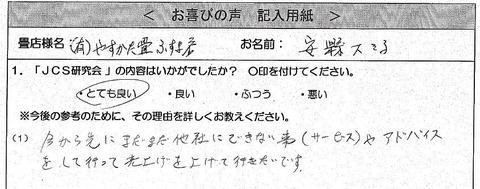 ＜ お喜びの声 記入用紙 ＞
畳店様名 (有)やすかた畳ふすま店 お名前：安
1．「JCS研究会」の内容はいかがでしたか？ ○印を付けてください。
・とても良い ・良い ・ふつう ・悪い
※今後の参考のために、その理由を詳しくお教えください。
(1) 今から先にまだまだ他社にできない事(サービス)や アドバイス
をして行って売上げを上げて行きたいです。